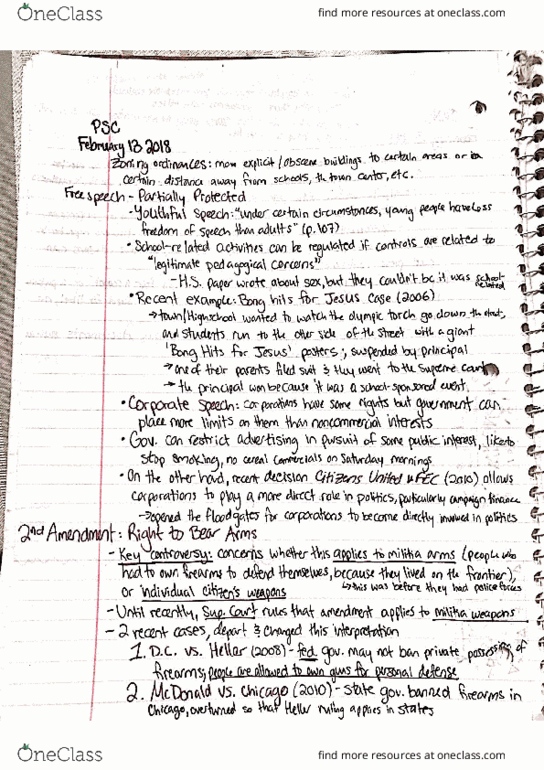 OneClass
find more resources at oneclass.com
PSC
February 13 2018
Zoning ordinances: move explicit/obscene buildings to certain areas or in
certain distance away from schools, the town center, etc.
Free speech - Partially Protected
- Youthful Speech: "under certain circumstances, young people have less
freedom of speech than adults" (p.107)
• School-related activities can be regulated if controls are related to
"legitimate pedagogical concerns"
- H.S. paper wrote about sex, but they couldn't bc it was school-
related
• Recent example: Bong hits for Jesus Case (2006)
→ town/Highschool wanted to watch the olympic torch go down the street,
and students run to the other side of the street with a giant
'Bong Hits for Jesus' posters; suspended by principal
→ one of their parents filed suit & they went to the Supreme Court
→ the principal won because it was a school-sponsored event
• Corporate Speech: corporations have some rights but government can
place more limits on them than noncommercial interests
• Gov. can restrict advertising in pursuit of some public interest, like to
stop smoking, no cereal commercials on Saturday mornings
• On the other hand, recent decision Citizens United v FEC (2010) allows
corporations to play a more direct role in politics, particularly campaign finance
→ opened the floodgates for corporations to become directly involved in politics
2nd Amendment: Right to Bear Arms
- Key controversy: concerns whether this applies to militia arms (people who
had to own firearms to defend themselves, because they lived on the frontier),
or individual citizen's weapons → this was before they had police forces
- Until recently, Sup. Court rules that amendment applies to militia weapons
- 2 recent cases, depart & changed this interpretation
1. D.C. vs. Hellar (2008) - fed. gov. may not ban private possessing of
firearms; people are allowed to own guns for personal defense
2. McDonald vs. Chicago (2010) - State gov. banned firearms in
Chicago, overturned so that Heller ruling applies in states
OneClass
find more resources at oneclass.com